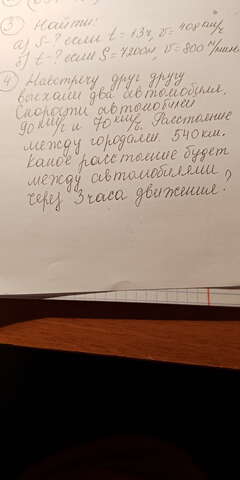 ③ Найти:
а) S-? если t = 13ч, v = 408 км/ч
б) t-? если S = 7200м, v = 800 м/мин
④ Навстречу друг другу
выехали два автомобиля.
Скорости автомобилей
90 км/ч и 70 км/ч. Расстояние
между городами 540 км.
Какое расстояние будет
между автомобилями
через 3 часа движения?